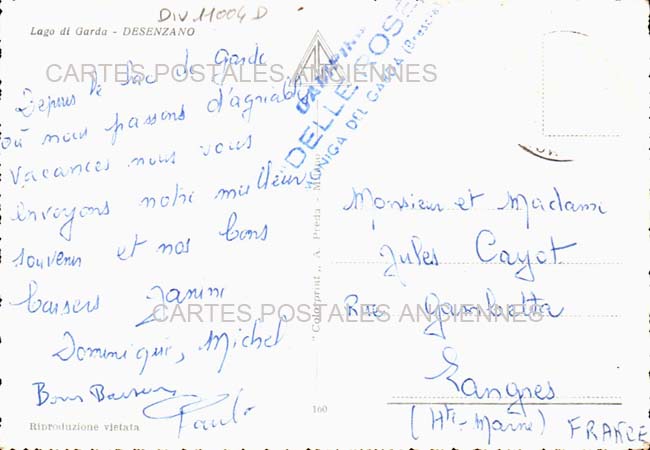 Div 11004 D
Lago di Garda - DESENZANO
CARTES POSTALES ANCIENNES
Depuis le Lac de Garde
où nous passons d'agréables
vacances nous vous
envoyons notre meilleur
souvenir et nos bons
baisers Janine
Dominique, Michel
Bons Baisers
Paulo
Riproduzione vietata
CAMPING
DELLE ROSE
MONIGA DEL GARDA (Brescia)
"Colorprint" A. Preda - Milano
160
Monsieur et Madame
Jules Cayot
Rue Gambetta
CARTES POSTALES ANCIENNES
Langres
(Hte-Marne) FRANCE